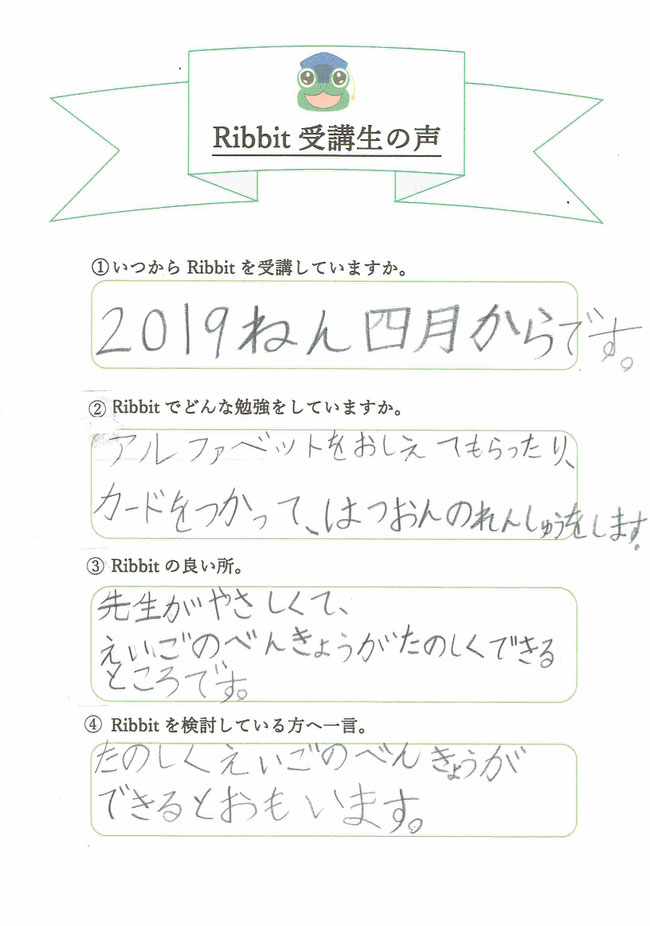 Ribbit 受講生の声
①いつから Ribbit を受講していますか。
2019ねん四月からです。
② Ribbit でどんな勉強をしていますか。
アルファベットをおしえてもらったり、
カードをつかって、はつおんのれんしゅうをします。
③ Ribbit の良い所。
先生がやさしくて、
えいごのべんきょうがたのしくできる
ところです。
④ Ribbit を検討している方へ一言。
たのしくえいごのべんきょうが
できるとおもいます。